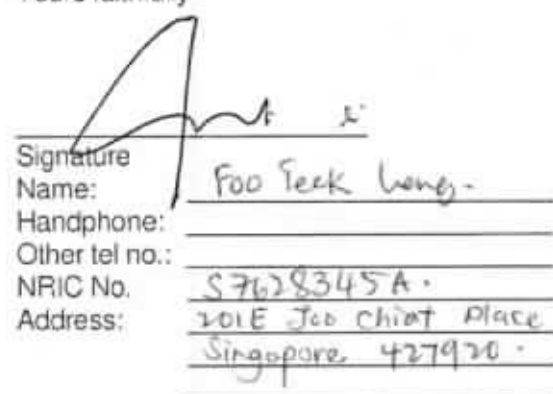 Yours faithfully
Signature
Name: Foo Teck
Handphone:
Other tel no.:
NRIC No. S7628345A.
Address: 201E Joo Chiat Place
Singapore 427920.